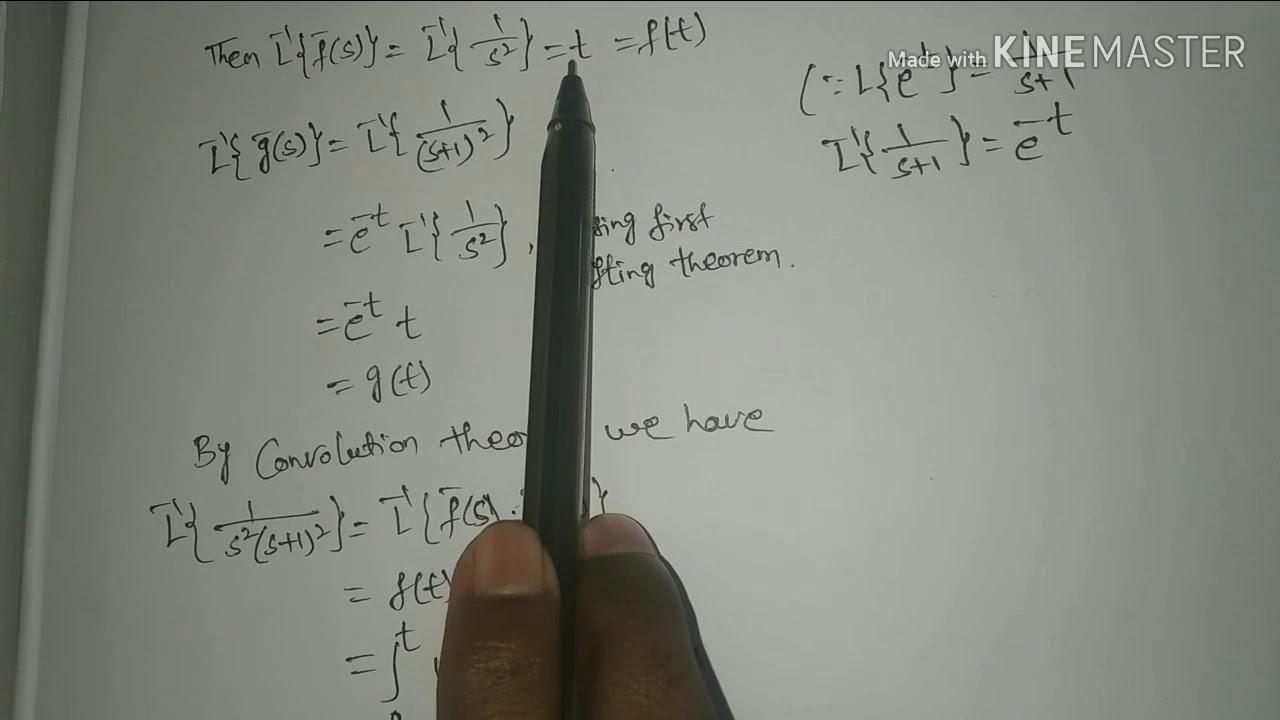 Made with KINEMASTER
Then L⁻¹{f̄(s)} = L⁻¹{1/s²} = t = f(t)
(∵ L{e⁻ᵗ} = 1/s+1
L⁻¹{1/s+1} = e⁻ᵗ
L⁻¹{ḡ(s)} = L⁻¹{1/(s+1)²}
= e⁻ᵗ L⁻¹{1/s²}, first
theorem.
= e⁻ᵗ t
= g(t)
By Convolution we have
L⁻¹{1/s²(s+1)²} = L⁻¹{f̄(s).
= f(t)
= ∫₀ᵗ